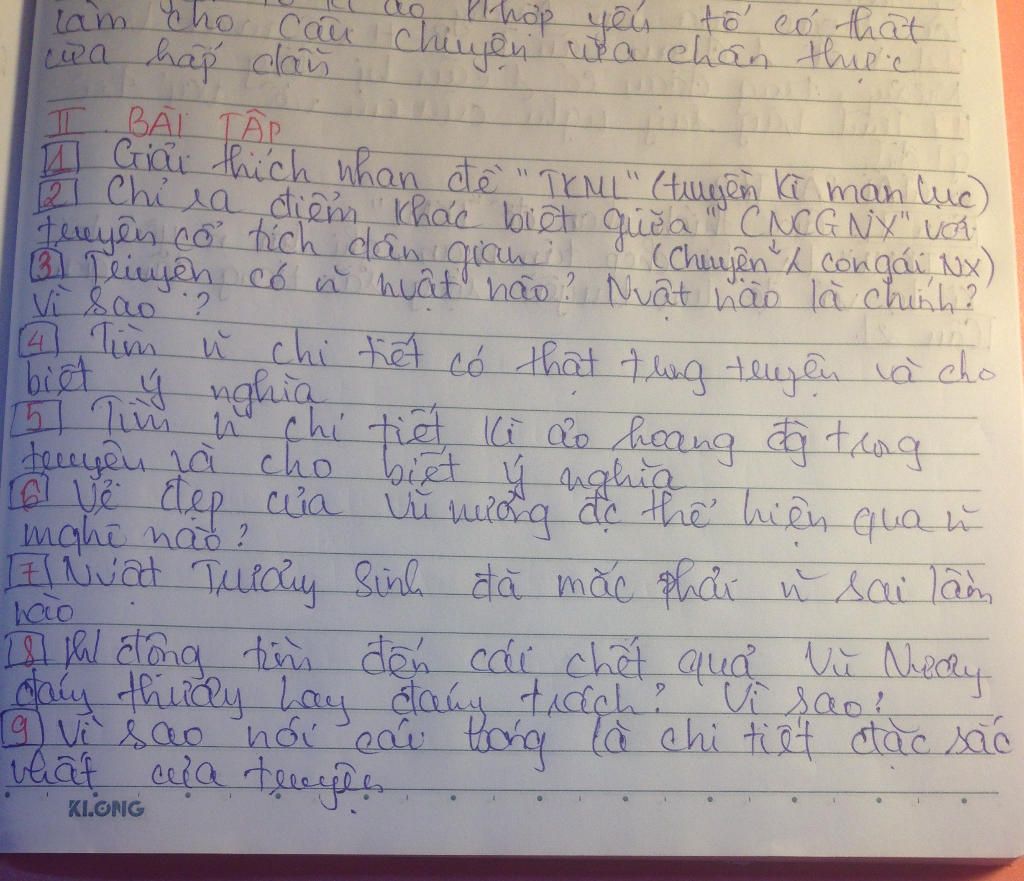 làm cho câu chuyện vừa chân thực
vừa hấp dẫn
II BÀI TẬP
1 Giải thích nhan đề "TKML" (truyền kì mạn lục)
2 Chỉ ra điểm khác biệt giữa "CNCGNX" với
truyện cổ tích dân gian (Chuyện ng` con gái NX)
3 Truyện có n~ nvật nào? Nvật nào là chính?
Vì sao?
4 Tìm n~ chi tiết có thật trong truyện và cho
biết ý nghĩa
5 Tìm n~ chi tiết kì ảo hoang đg trong
truyện và cho biết ý nghĩa
6 Vẻ đẹp của Vũ nương đc thể hiện qua n~
nghĩ nào?
7 Nvật Trương Sinh đã mắc phải n~ sai lầm
nào
8 hđ đông tìm đến cái chết quả Vũ Nương
đáng thương hay đáng trách? Vì sao?
9 Vì sao nói cái bóng là chi tiết đặc sắc
nhất của truyện
KLONG